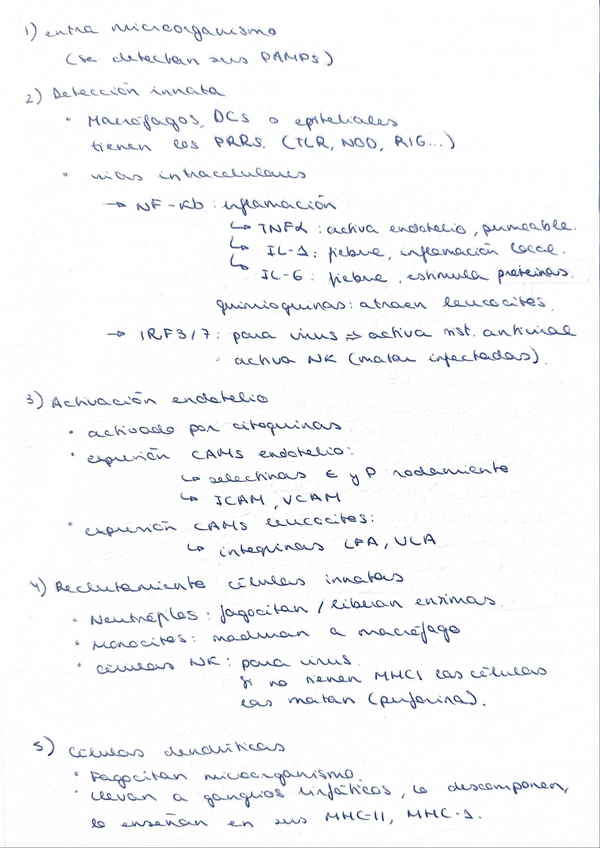 1) entra microorganismo
(se detectan sus PAMPs)
2) Detección innata
• Macrófagos, DCs o epiteliales
tienen los PRRs. (TLR, NOD, RIG...)
• vías intracelulares
→ NF-Kb: inflamación
↳ TNFα: activa endotelio, permeable.
↳ IL-1: fiebre, inflamación local.
↳ IL-6: fiebre, estimula proteínas.
quimioquinas: atraen leucocitos.
→ IRF3/7: para virus ⇒ activa rist. antiviral
activa NK (matar infectadas).
3) Activación endotelio
• activado por citoquinas
• expresión CAMs endotelio:
↳ selectinas E y P rodamiento
↳ ICAM, VCAM
• expresión CAMs leucocitos:
↳ integrinas LFA, VLA
4) Reclutamiento células innatas
• Neutrófilos: fagocitan / liberan enzimas.
• Monocitos: maduran a macrófago
• células NK: para virus.
Si no tienen MHCI las células
las matan (perforina).
5) Células dendríticas
• Fagocitan microorganismo.
• llevan a ganglios linfáticos, lo descomponen,
lo enseñan en sus MHC-II, MHC-1.